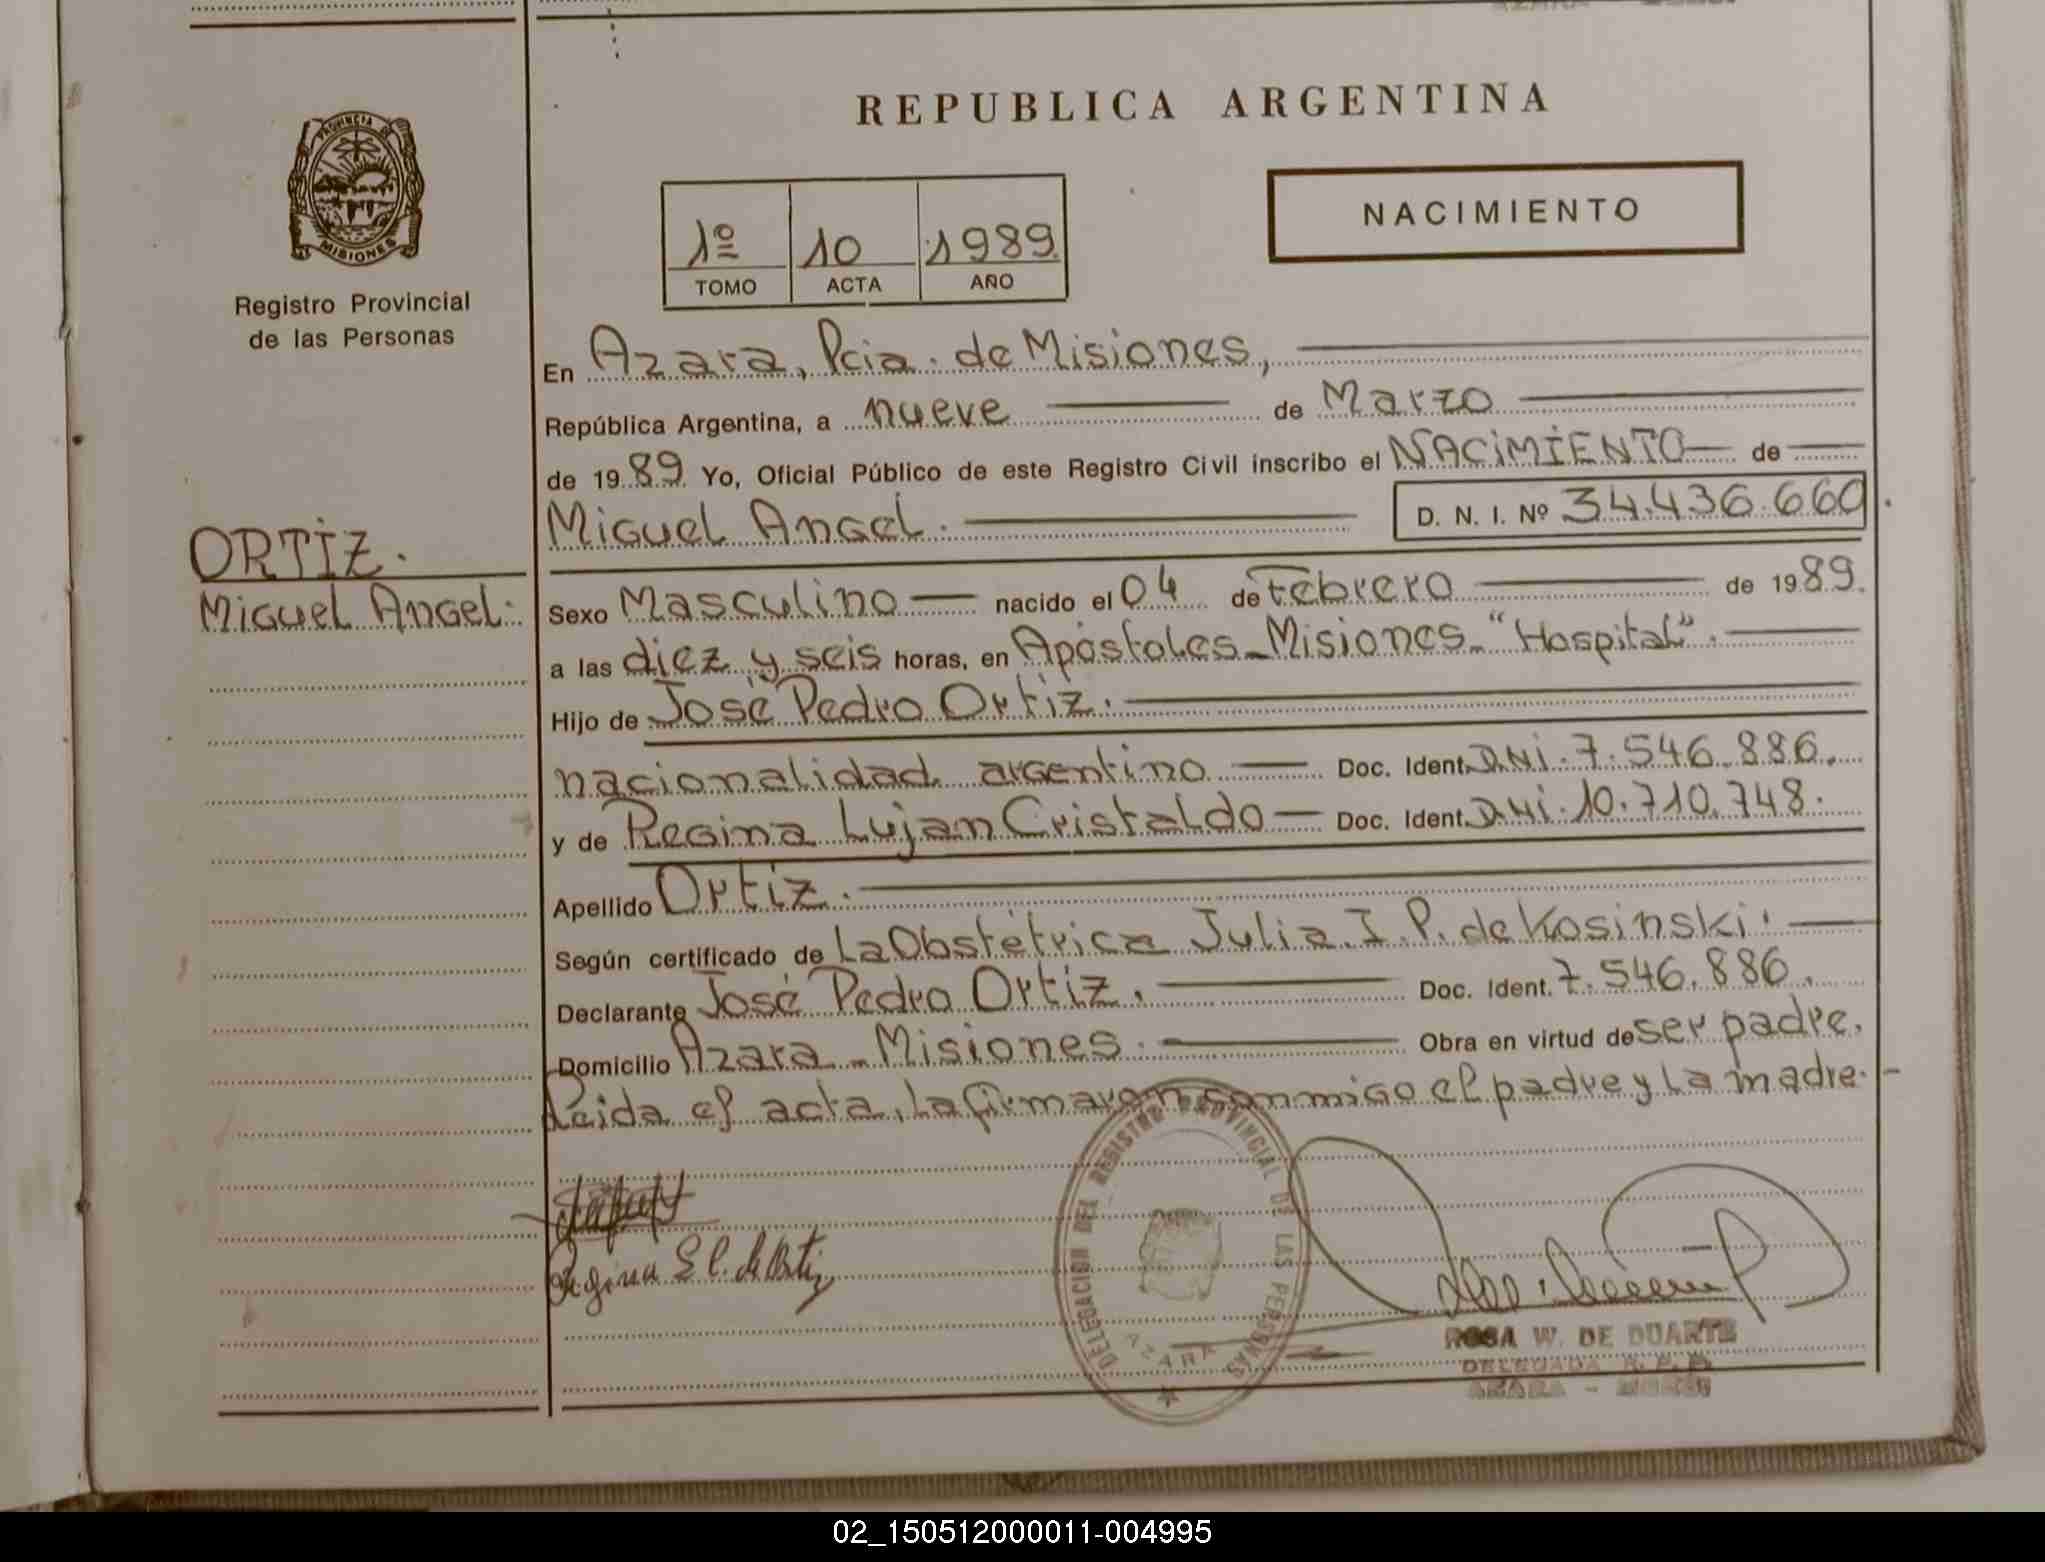 REPUBLICA ARGENTINA
PROVINCIA DE
MISIONES
Registro Provincial
de las Personas
1º 10 1989.
TOMO ACTA AÑO
NACIMIENTO
En Azara, Pcia. de Misiones,
República Argentina, a nueve de Marzo
de 1989. Yo, Oficial Público de este Registro Civil inscribo el NACIMIENTO de
Miguel Angel. D. N. I. Nº 34.436.660.
ORTIZ.
Miguel Angel.
Sexo Masculino nacido el 04 de Febrero de 1989.
a las diez y seis horas, en Apóstoles - Misiones - "Hospital".
Hijo de José Pedro Ortiz.
nacionalidad argentino Doc. Ident. DNI. 7.546.886.
y de Regina Lujan Cristaldo Doc. Ident. DNI. 10.710.748.
Apellido Ortiz.
Según certificado de La Obstétrica Julia I. P. de Kosinski.
Declarante José Pedro Ortiz. Doc. Ident. 7.546.886.
Domicilio Azara - Misiones. Obra en virtud de ser padre.
Leida el acta, la firmaron conmigo el padre y la madre.-
DELEGACION DEL REGISTRO PROVINCIAL DE LAS PERSONAS
AZARA
Regina L C. de Ortiz
ROSA W. DE DUARTE
DELEGADA R. P. P.
AZARA - MNES
02_150512000011-004995